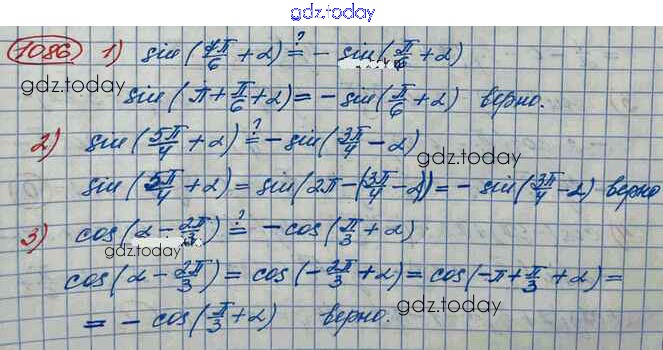 gdz.today
1086. 1) sin(7π/6 + α) ≟ - sin(π/6 + α)
gdz.today
sin(π + π/6 + α) = - sin(π/6 + α) верно.
2) sin(5π/4 + α) ≟ - sin(3π/4 - α)
gdz.today
sin(5π/4 + α) = sin(2π - (3π/4 - α)) = - sin(3π/4 - α) верно
3) cos(α - 2π/3) ≟ - cos(π/3 + α)
gdz.today
cos(α - 2π/3) = cos(-2π/3 + α) = cos(-π + π/3 + α) =
gdz.today
= - cos(π/3 + α) верно.